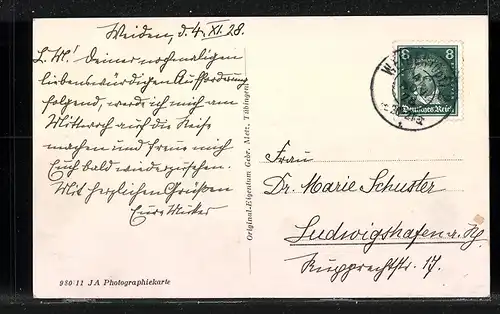 Weiden, d. 4. XI. 28.
L. M.! Deiner nochmaligen
liebenswürdigen Aufforderung
folgend, werd ich mich am
Mittwoch auf die Reise
machen und freue mich
Euch bald wiederzusehen.
Mit herzlichen Grüßen
Eure Mutter
980 11 J A Photographiekarte
Original-Eigentum Gebr. Metz, Tübingen
8 8
Deutsches Reich
Frau
Dr. Marie Schuster
Ludwigshafen a. Rh.
Rupprechtstr. 17.